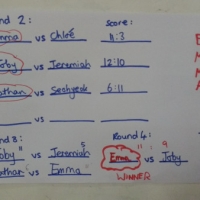 nd 2: Score:
mma vs Chloé 11:3
oby vs Jeremiah 12:10
athan vs 6:11
vs
nd 3: Round 4:
oby 11 vs Jeremiah 5 Emma 11 vs Toby 9
athan vs Emma WINNER
E
M
M
A